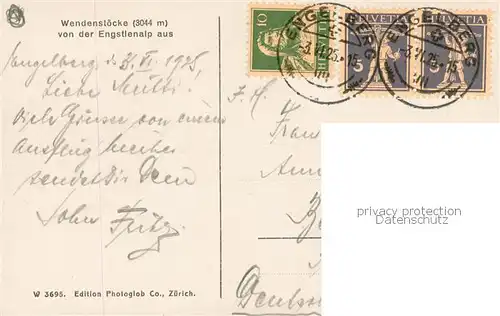 Wendenstöcke (3044 m)
von der Engstlenalp aus
Engelberg d. 3. VI. 1925.
Liebe Mutti!
Viele Grüsse von einem
Ausflug hierher
sendet Dir Dein
Sohn Fritz.
W 3695. Edition Photoglob Co., Zürich.
10
HELVETIA
15
HELVETIA
15
ENGELBERG
-3.VI.25.
ENGELBERG
-3.VI.25.-15
F. H.
Frau
privacy protection
Datenschutz